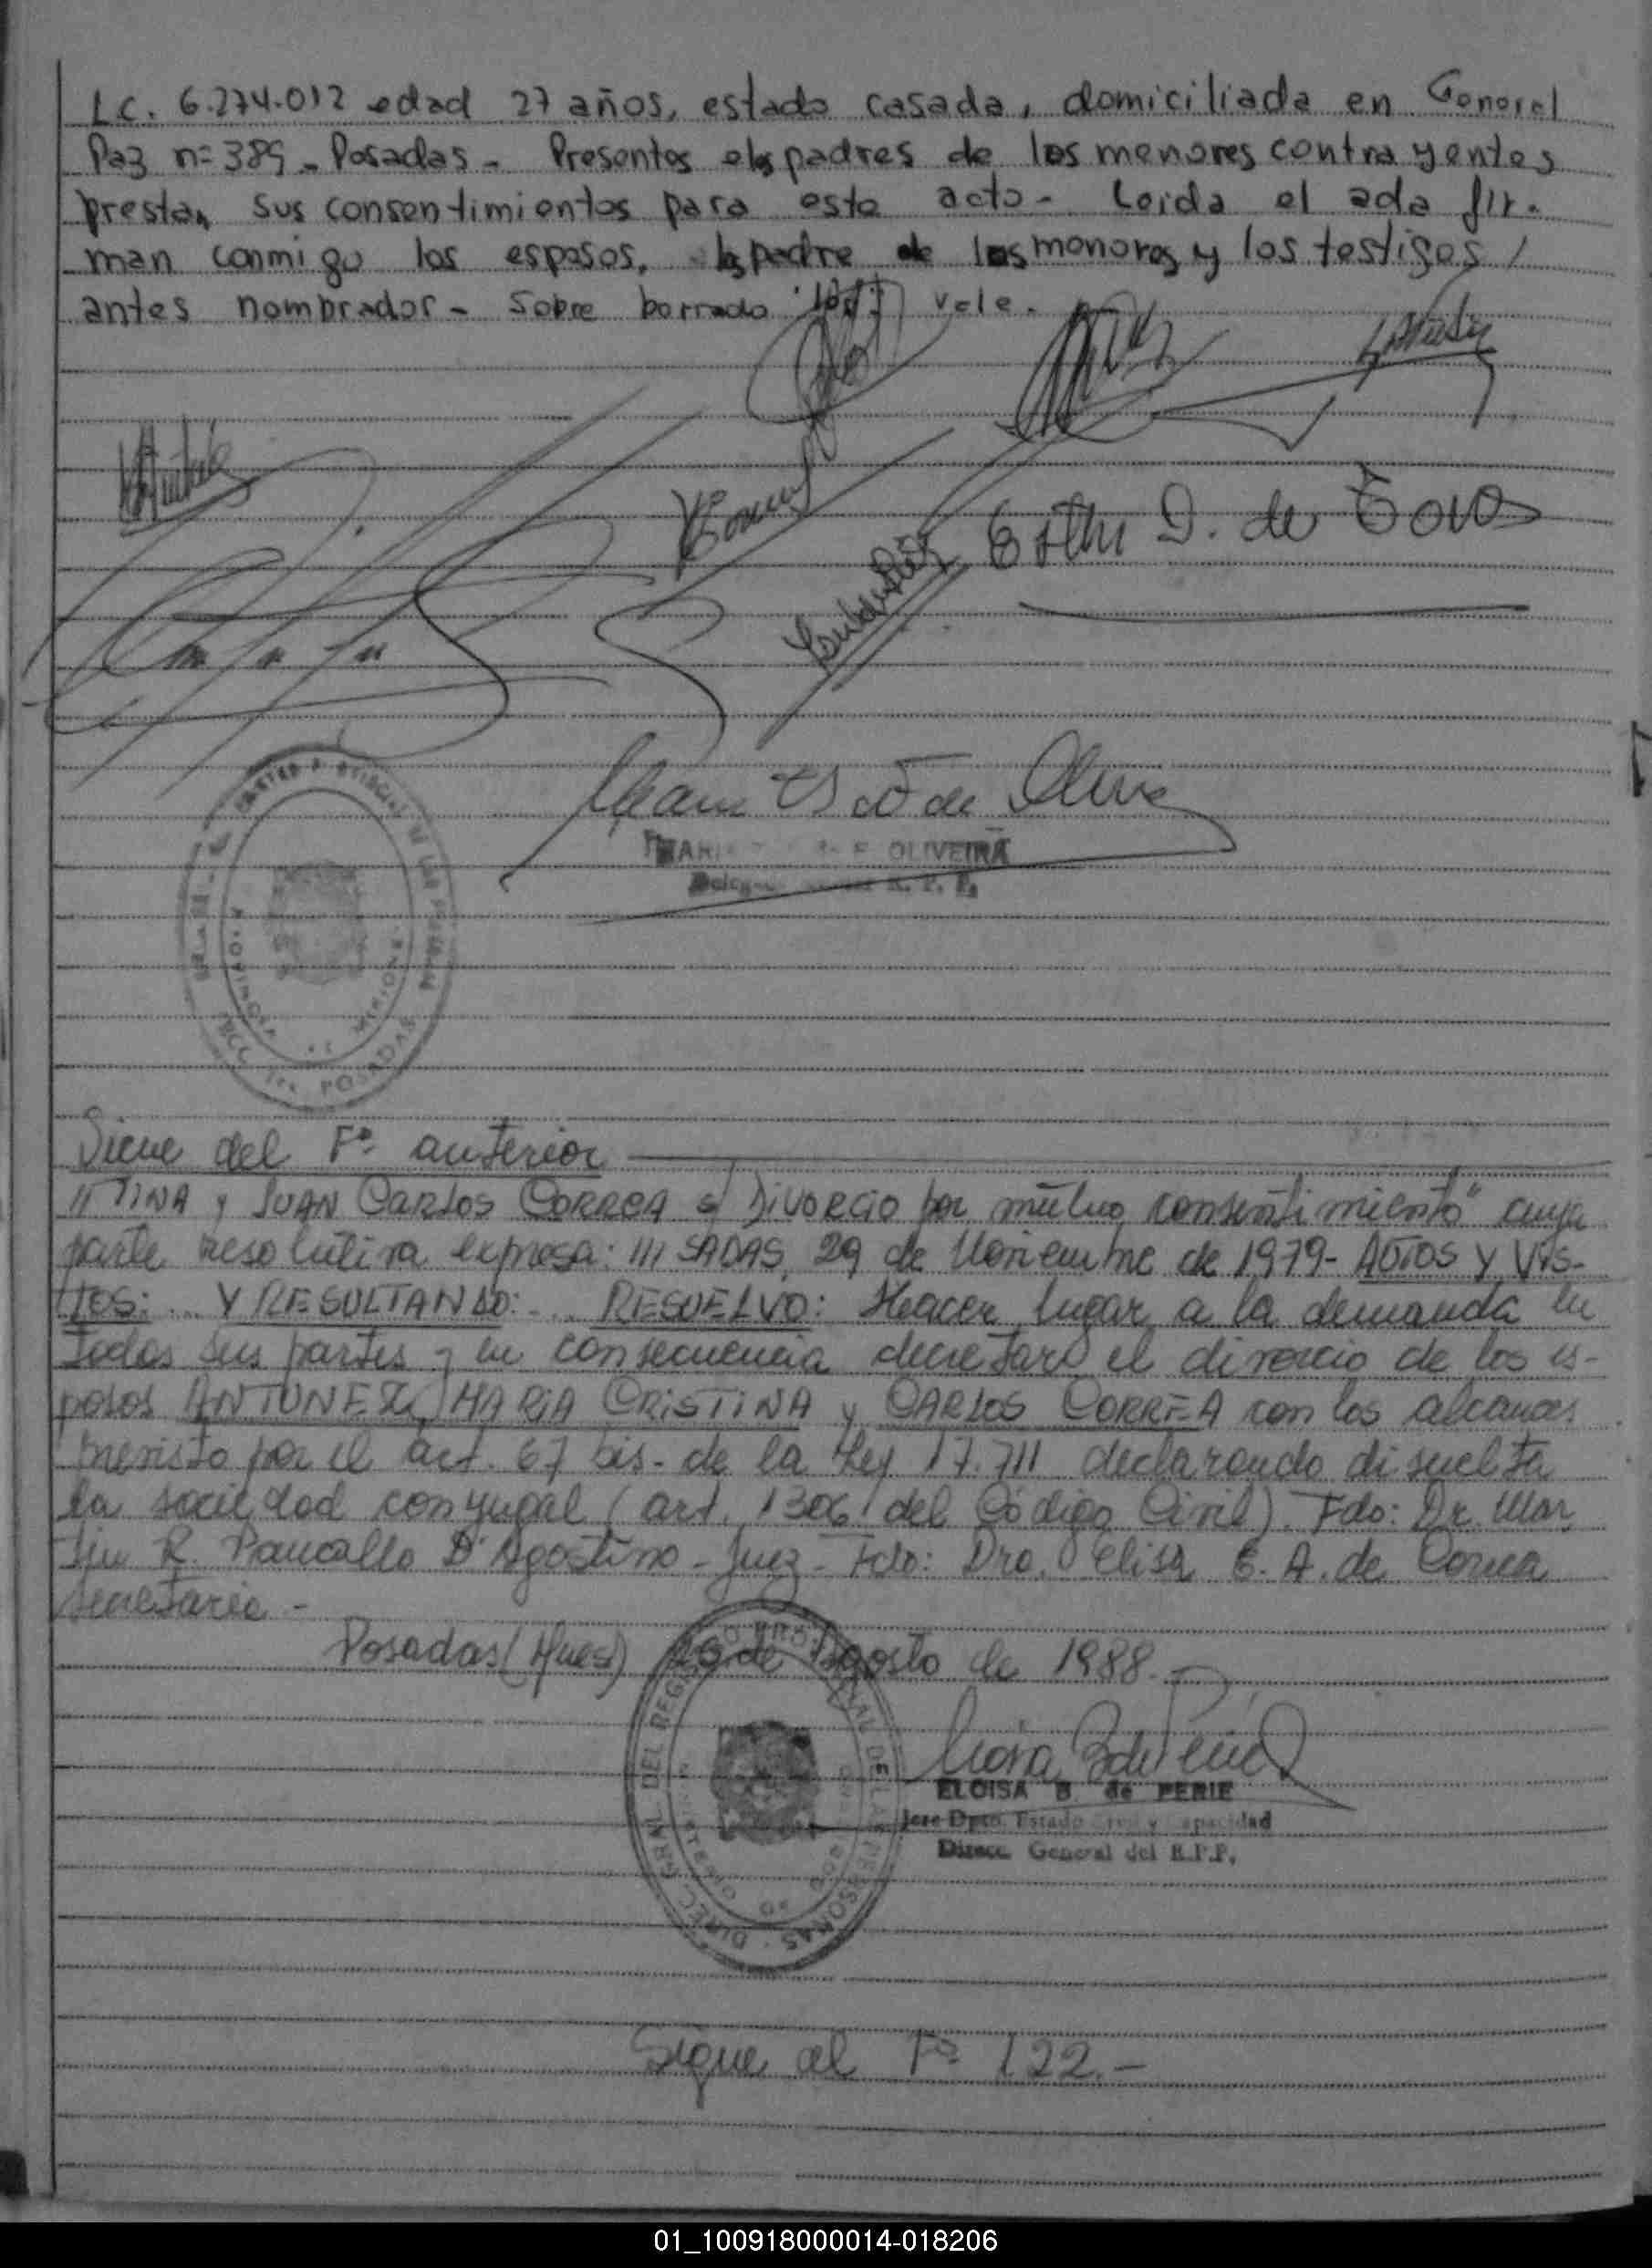 L.C. 6.274.012 edad 27 años, estado casada, domiciliada en General
Paz n=389 - Posadas - Presentes los padres de los menores contrayentes
prestan sus consentimientos para este acto - Leida el acta fir-
man conmigo los esposos, los padre de los menores y los testigos /
antes nombrador - Sobre borrado vale.
de
MARI OLIVEIRA
R. P. P.
PROVINCIA MISIONES
POSADAS
Viene del Fº anterior
// TINA y JUAN CARLOS CORREA s/ DIVORCIO por mutuo consentimiento" cuya
parte resolutiva expresa: /// SADAS, 29 de Noviembre de 1979- AUTOS Y VIS-
TOS: .. Y RESULTANDO: .. RESUELVO: Heacer lugar a la demanda en
todas sus partes y en consecuencia decretar el divorcio de los es-
posos ANTUNEZ, MARIA CRISTINA y CARLOS CORREA con los alcances
previsto por el art. 67 bis - de la Ley 17.711 declarando disuelta
la sociedad conyugal (art. 1306 del Código Civil). Fdo: Dr. Mar
tin R. D'Agostino - Juez - Fdo: Dra. Elisa E. A. de Correa
secretaria -
Posadas (Mnes) de Agosto de 1988.
ELOISA B. de PERIE
Jefe Dpto. Estado Civil y Capacidad
Direcc. General del R.P.P.
DIREC. GRAL. DEL REGISTRO PROVINCIAL DE LAS PERSONAS
Sigue al Fº 122.-
01_100918000014-018206